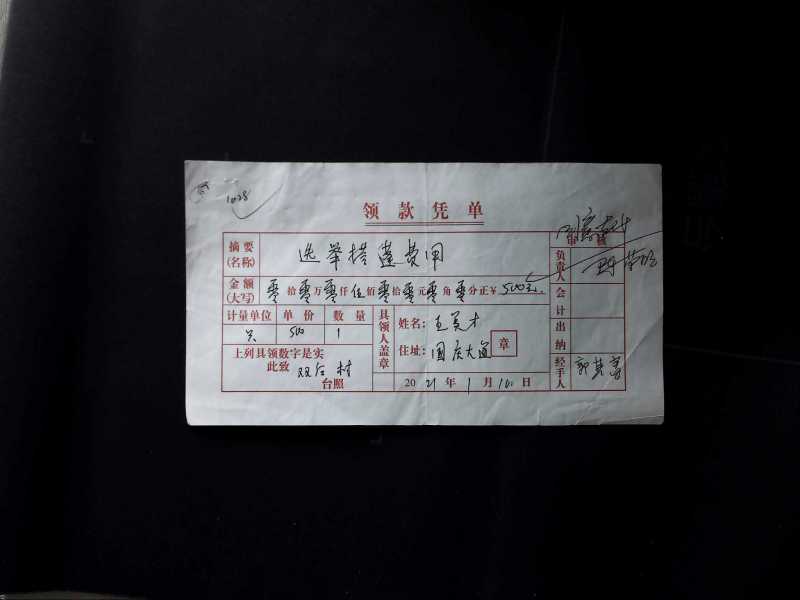 1028
领款凭单
审核
摘要(名称) 选举搭蓬费用
负责人
金额(大写) 零拾零万零仟伍佰零拾零元零角零分正¥ 500元
会计
计量单位 单价 数量
500 1
具领人盖章
姓名: 王美才
住址: 国庆大道 章
出纳
上列具领数字是实
此致 双石村
台照
2021年1月10日
经手人 郭其富